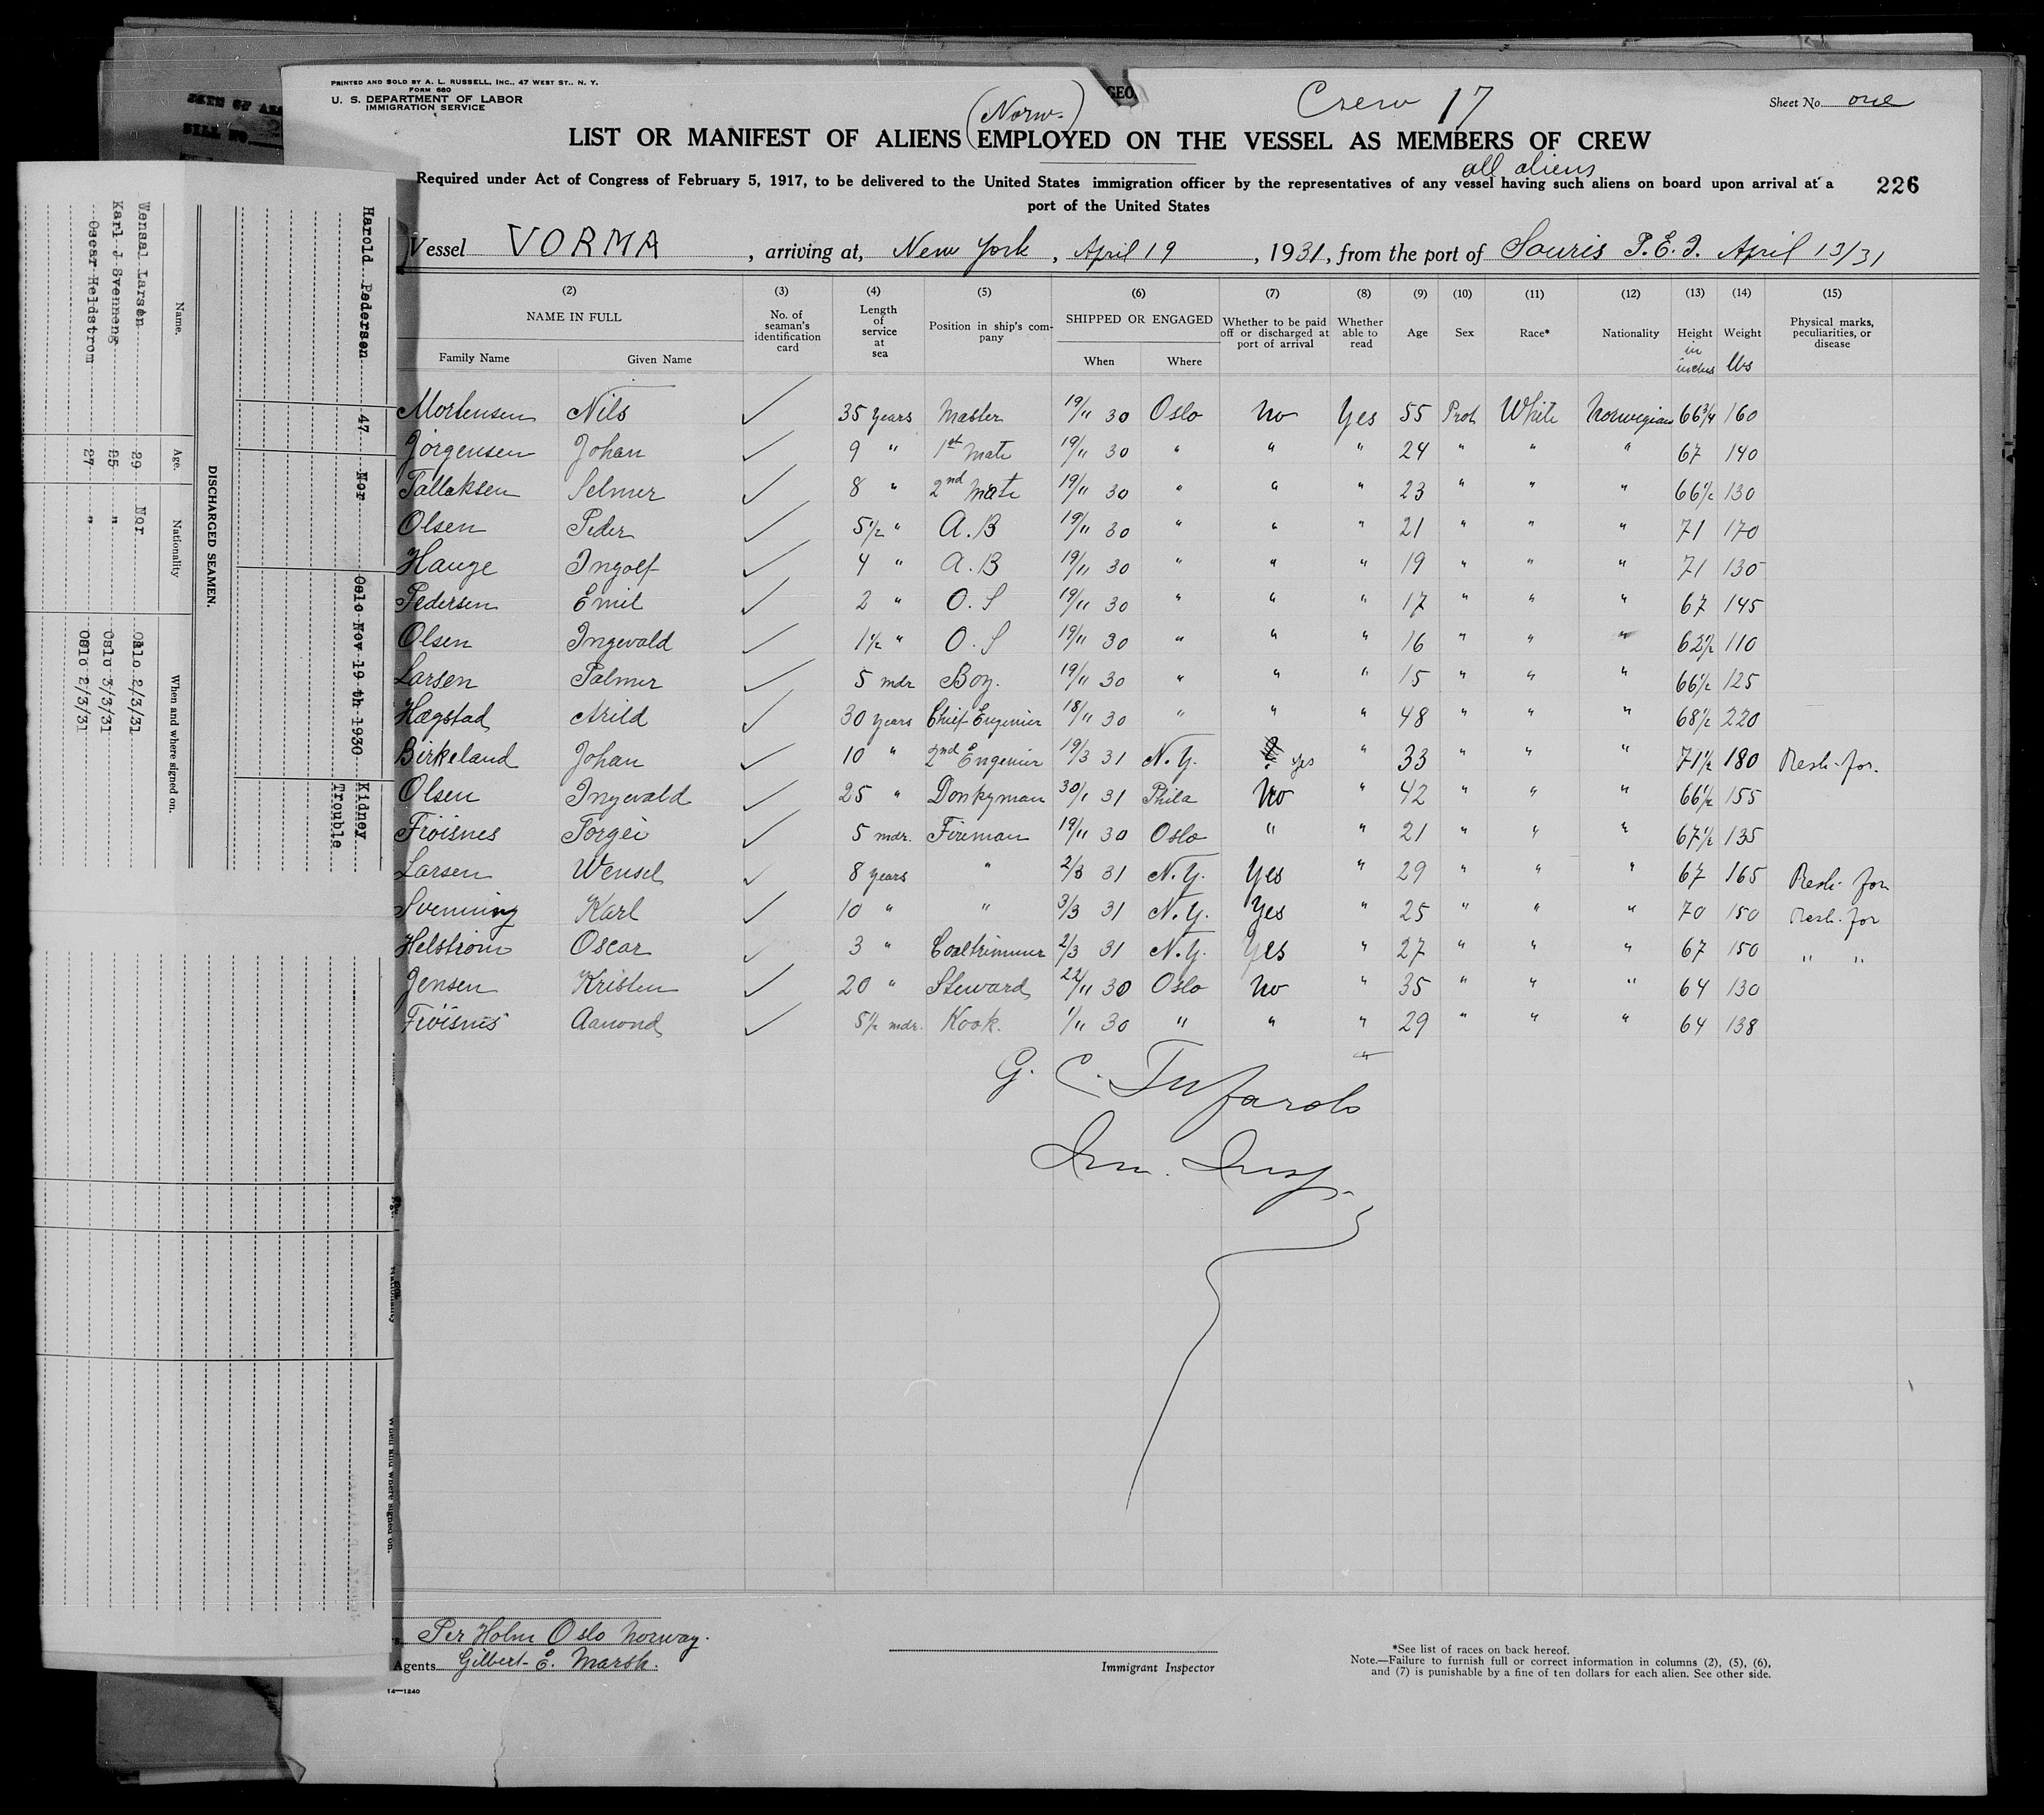 PRINTED AND SOLD BY A. L. RUSSELL, INC., 47 WEST ST., N. Y.
FORM 680
U. S. DEPARTMENT OF LABOR
IMMIGRATION SERVICE
(Norw.)
GEO
Crew 17
Sheet No. one
LIST OR MANIFEST OF ALIENS EMPLOYED ON THE VESSEL AS MEMBERS OF CREW
all aliens
Required under Act of Congress of February 5, 1917, to be delivered to the United States immigration officer by the representatives of any vessel having such aliens on board upon arrival at a
port of the United States
226
Vessel VORMA, arriving at, New York, April 19, 1931, from the port of Souris P.E.I. April 13/31
(2) (3) (4) (5) (6) (7) (8) (9) (10) (11) (12) (13) (14) (15)
NAME IN FULL
Family Name Given Name
No. of seaman's identification card
Length of service at sea
Position in ship's company
SHIPPED OR ENGAGED
When Where
Whether to be paid off or discharged at port of arrival
Whether able to read
Age
Sex
Race*
Nationality
Height in inches
Weight lbs
Physical marks, peculiarities, or disease
Mortensen Nils ✓ 35 years Master 19/11 30 Oslo No Yes 55 Prot White Norwegian 66 3/4 160
Jörgensen Johan ✓ 9 " 1st Mate 19/11 30 " " " 24 " " " 67 140
Tallaksen Selmer ✓ 8 " 2nd Mate 19/11 30 " " " 23 " " " 66 1/2 130
Olsen Peder ✓ 5 1/2 " A.B 19/11 30 " " " 21 " " " 71 170
Hauge Ingolf ✓ 4 " A.B 19/11 30 " " " 19 " " " 71 130
Pedersen Emil ✓ 2 " O.S 19/11 30 " " " 17 " " " 67 145
Olsen Ingevald ✓ 1 1/2 " O.S 19/11 30 " " " 16 " " " 62 1/2 110
Larsen Palmer ✓ 5 mdr Boy. 19/11 30 " " " 15 " " " 66 1/2 125
Hægstad Arild ✓ 30 years Chief Engenier 18/11 30 " " " 48 " " " 68 1/2 220
Birkeland Johan ✓ 10 " 2nd Engenier 19/3 31 N.Y. yes " 33 " " " 71 1/2 180 Resh. for.
Olsen Ingevald ✓ 25 " Donkyman 30/1 31 Phila No " 42 " " " 66 1/2 155
Fröisnes Torgei ✓ 5 mdr. Fireman 19/11 30 Oslo " " 21 " " " 67 1/2 135
Larsen Wensel ✓ 8 years " 2/3 31 N.Y. Yes " 29 " " " 67 165 Resh. for
Svenning Karl ✓ 10 " " 3/3 31 N.Y. Yes " 25 " " " 70 150 Resh. for
Helström Oscar ✓ 3 " Coaltrimmer 2/3 31 N.Y. Yes " 27 " " " 67 150 " "
Jensen Kristen ✓ 20 " Steward 22/11 30 Oslo No " 35 " " " 64 130
Fröisnes Aamond ✓ 5 1/2 mdr. Kook. 1/11 30 " " " 29 " " " 64 138
G. C. Tufarolo
Im. Insp.
Per Holm Oslo Norway.
Agents Gilbert E. Marsh.
14—1240
Immigrant Inspector
*See list of races on back hereof.
Note.—Failure to furnish full or correct information in columns (2), (5), (6),
and (7) is punishable by a fine of ten dollars for each alien. See other side.
Harold Pedersen 47 Nor Oslo Nov 19 th 1930 Kidney
Trouble
DISCHARGED SEAMEN.
Name. Age. Nationality When and where signed on.
Wensal Larsen 29 Nor Oslo 2/3/31
Karl J Svenneng 25 " Oslo 3/3/31
Oscar Heldstrom 27 " Oslo 2/3/31
BILL NO.